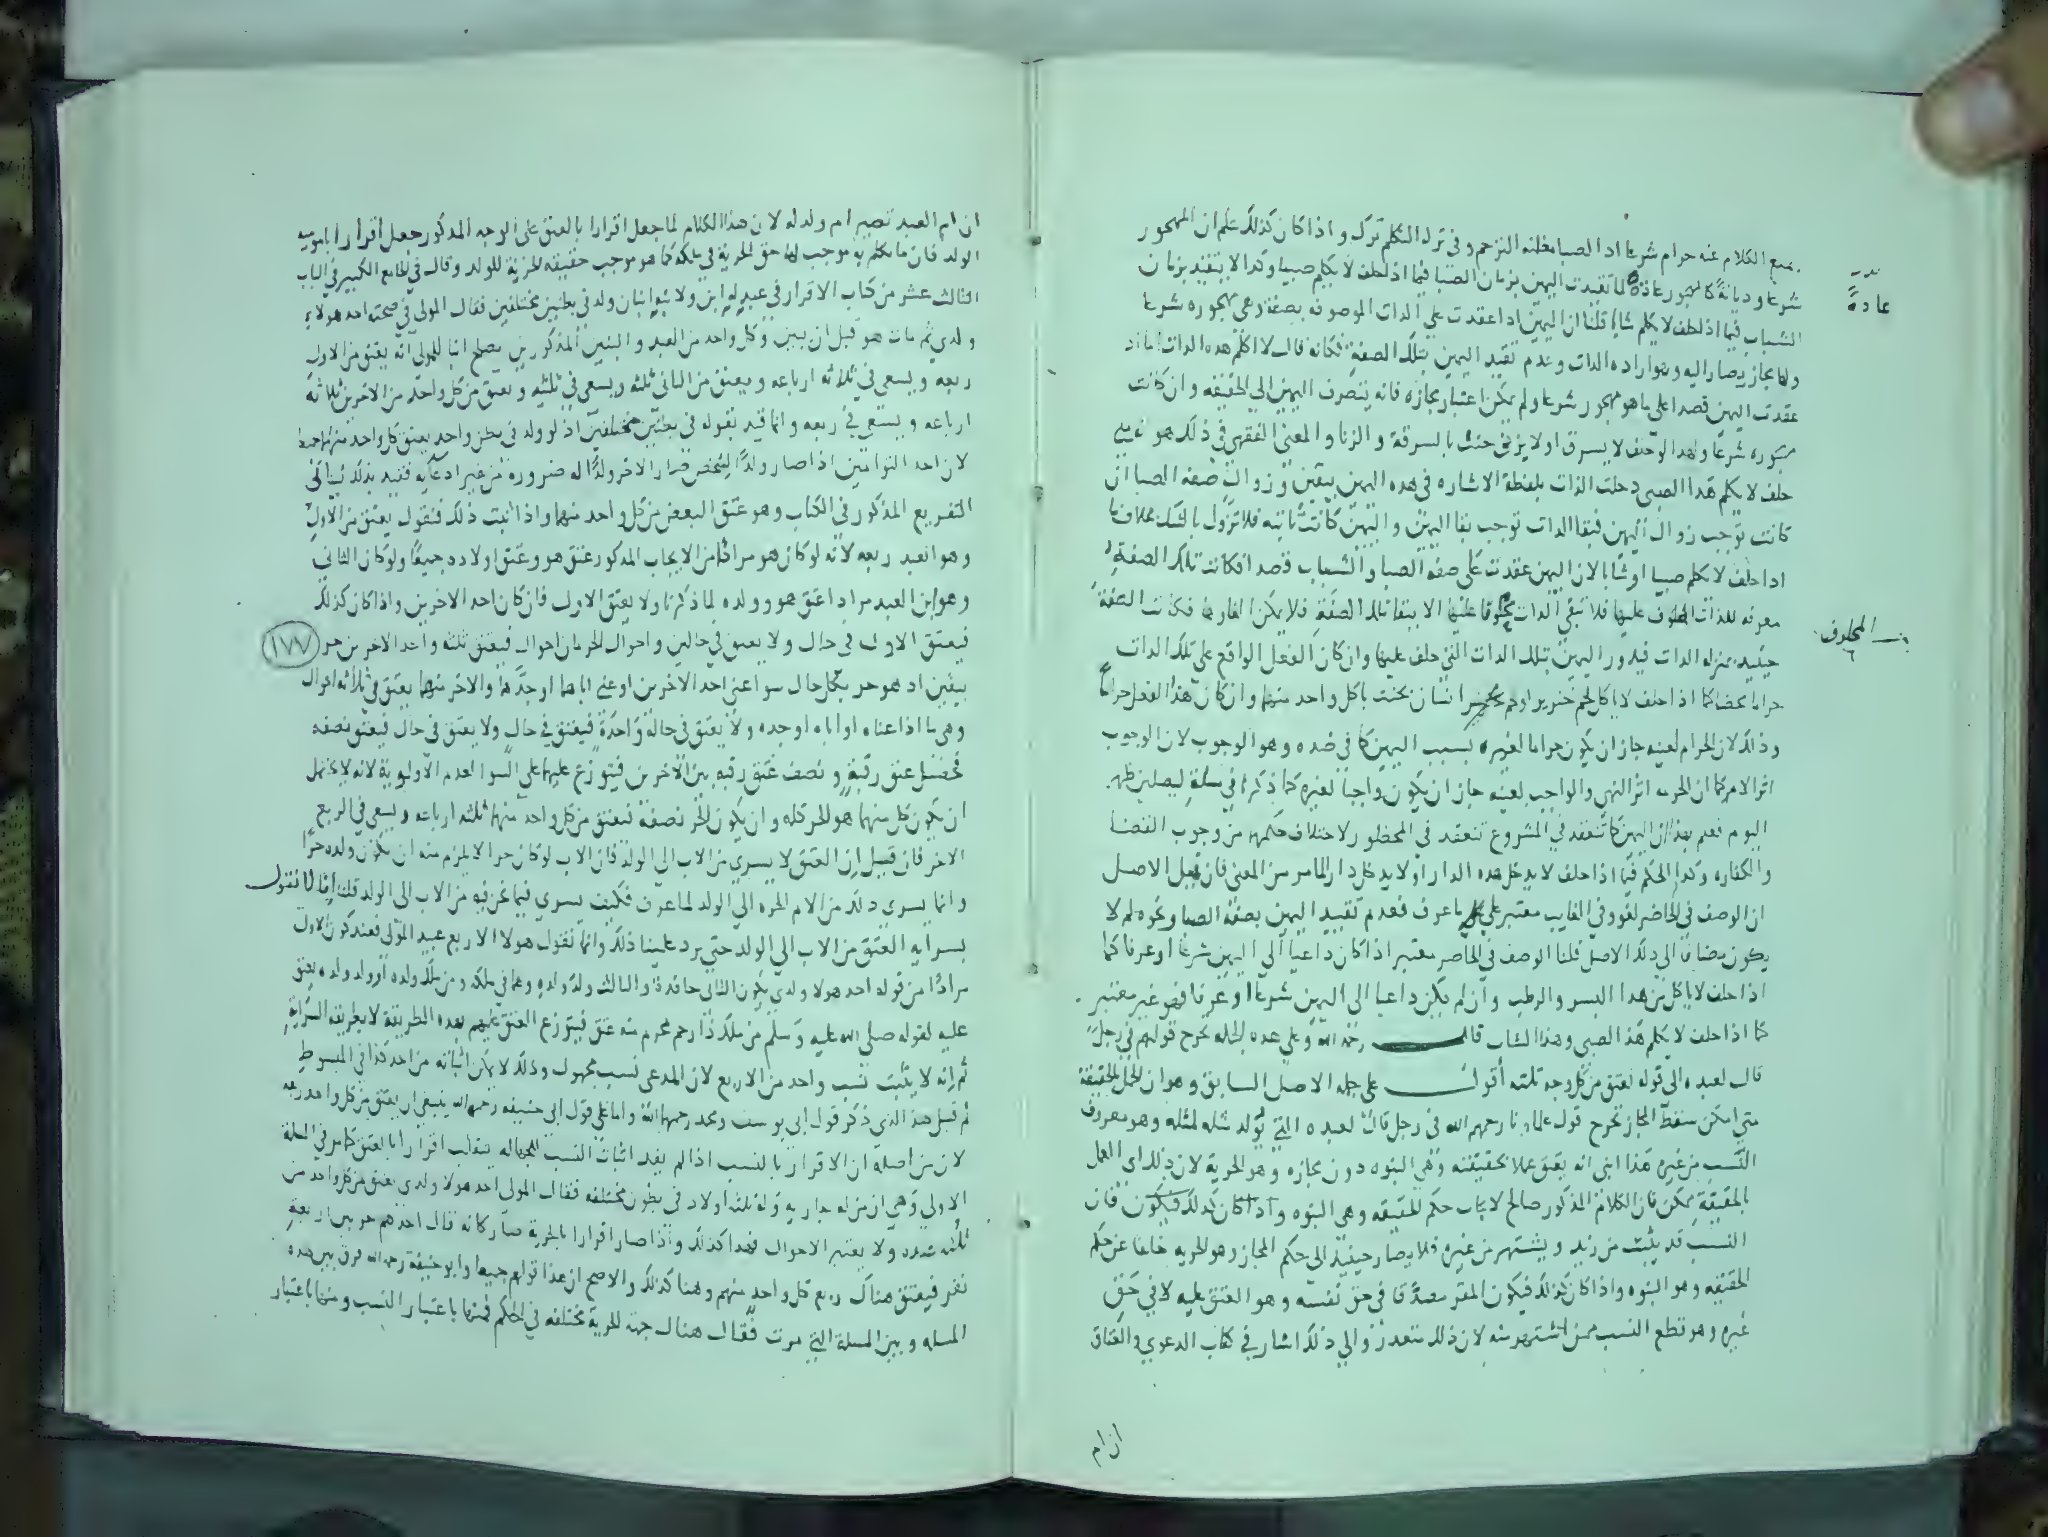 بمنع الكلام عنه حرام شرعا اد الصبا مظنه الترحم وفى ترك التكلم ترك واذا كان كذلك علم ان المهجور
شرعا وديانة كالمهجور عادة لما تقيدت اليمين بزمان الصبا فيما اذ احلف لا يكلم صبيا وكدا لا يتقيد بزمان
عادةً
الشباب فيما اذ احلف لا يكلم شابا قلنا ان اليمين ادا عقدت على الدات الموصوفه بصفة وهى مهجوره شرعا
ولها مجاز يصار اليه وهو اراده الدات وعدم تقيد اليمين بتلك الصفة فكانه قال لا اكلم هده الدات اما اد
عقدت اليمين قصدا على ما هو مهجور شرعا ولم يمكن اعتبار مجازه فانه ينصرف اليمين الى الحقيقه وان كانت
مهجوره شرعا ولهدا لو حلف لا يسرق او لا يزنى حنث بالسرقة والزنا والمعنى الفقهى فى ذلك هو انه متى
حلف لا يكلم هدا الصبى دخلت الذات بلفظة الاشاره فى هده اليمين بيقين وزوال صفه الصبا ان
كانت توجب زوال اليمين فبقا الدات توجب بقا اليمين واليمين كانت ثابتة فلا تزول بالشك بخلاف ما
ادا حلف لا يكلم صبيا او شابا لان اليمين عقدت على صفه الصبا والشباب قصدا فكانت تلك الصفة
معرفه للذات المحلوف عليها فلا تبقى الدات محلوفا عليها الا ببقا تلك الصفة فلا يمكن الغاوها فكانت الصفة
المحلوف
حينيد بمنزله الدات فيدور اليمين بتلك الدات التى حلف عليها وان كان الفعل الواقع على تلك الدات
حراما محضا كما اذا حلف لا ياكل لحم خنزير او لحم انسان يحنث باكل واحد منهما وان كان هذا الفعل حراما
وذلك لان الحرام لعينه جاز ان يكون حراما لغيره بسبب اليمين كما فى ضده وهو الوجوب لان الوجوب
اثر الامر كما ان الحرمه اثر النهى والواجب لعينه جاز ان يكون واجبا لغيره كما ذكرنا فى مسلة ليصلين ظهر
اليوم فعلم بهذا ان اليمين كما تنعقد فى المشروع تنعقد فى المحظور لاختلاف حكمهما من وجوب القضا
والكفاره وكدا الحكم فيما اذا حلف لا يدخل هده الدار او لا يدخل دارا لما مر من المعنى فان قيل الاصل
ان الوصف فى الحاضر لغو وفى الغايب معتبر على ما عرف فعدم تقييد اليمين بصفة الصبا ونحوه لم لا
يكون مضافا الى دلك الاصل قلنا الوصف فى الحاضر معتبر اذا كان داعيا الى اليمين شرعا او عرفا كما
اذا حلف لا ياكل من هدا البسر والرطب وان لم يكن داعيا الى اليمين شرعا او عرفا فهو غير معتبر
كما اذا حلف لا يكلم هذ الصبى وهذا الشاب قال رحمه الله وعلى هده الجمله يخرج قولهم فى رجل
قال لعبده الى قوله يعتق من كل وجه ثلثه أقول على جمله الاصل السابق وهو ان العمل بالحقيقة
متى امكن سقط المجاز يخرج قول علماونا رحمهم الله فى رجل قال لعبده التى يولد مثله لمثله وهو معروف
النسب من غيره هذا ابنى انه يعتق عملا بحقيقته وهى البنوه دون مجازه وهو الحرية لان ذلك اى العمل
بالحقيقة ممكن فان الكلام المذكور صالح لايجاب حكم الحقيقه وهى البنوه واذا كان كدلك فيكون فان
النسب قد يثبت من زيد ويشتهر من غيره فلا يصار حينيذ الى حكم المجاز وهو الحريه خالفا عن حكم
الحقيقه وهو البنوه واذا كان كذلك فيكون المقر مصدقا فى حق نفسه وهو العتق عليه لا فى حق
غيره وهو قطع النسب ممن اشتهر منه لان ذلك متعذر والى ذلك اشار فى كتاب الدعوى والعتاق
ان ام
ان ام العبد تصير ام ولد له لان هذا الكلام لما جعل اقرارا بالعتق على الوجه المذكور جعل اقرارا باموميه
الولد فان ما تكلم به موجب لها حق الحرية فى ملكه كما هو موجب حقيقه الحرية للولد وقال فى الجامع الكبير فى الباب
الثالث عشر من كتاب الاقرار فى عبد له ابن ولابنه ابنان ولد فى بطنين مختلفين فقال المولى فى صحته احد هولاء
ولدى ثم مات هو قبل ان يبين وكل واحد من العبد والبنين المذكورين يصلح ابنا للمولى انه يعتق من الاول
ربعه ويسعى فى ثلاثه ارباعه ويعتق من الثانى ثلثه ويسعى فى ثلثيه ويعتق من كل واحد من الاخرين ثلاثة
ارباعه ويسعى فى ربعه وانما قيد بقوله فى بطنين مختلفين اذ لو ولد فى بطن واحد يعتق كل واحد منهما جميعا
لان احد التوامين اذا صار ولدا لشخص صار الاخر ولدا له ضرورة من غير ادعايه فقيد بذلك ليتاتى
التفريع المذكور فى الكتاب وهو عتق البعض من كل واحد منهما واذا ثبت ذلك فنقول يعتق من الاول
وهو العبد ربعه لانه لو كان هو مرادا من الايجاب المدكور عتق هو وعتق اولاده جميعا ولو كان الثانى
وهو ابن العبد مرادا عتق هو وولده لما ذكرنا ولا يعتق الاول فان كان احد الاخرين واذا كان كذلك
فيعتق الاول فى حال ولا يعتق فى حالين واحوال الحرمان احوال فيعتق ثلثه واحد الاخرين حر
١٧٧
بيقين اد هو حر بكل حال سوا عنى احد الاخرين او عنى اباهما او جدهما والاخر منهما يعتق فى ثلاثه احوال
وهى ما اذا عناه او اباه او جده ولا يعتق فى حاله واحدة فيعتق فى حال ولا يعتق فى حال فيعتق نصفه
فحصل عتق رقبة ونصف عتق رقبه بين الاخرين فيتوزع عليهما على السوا لعدم الاولوية لانه لا يحتمل
ان يكون كل منهما هو الحر كله وان يكون الحر نصفه فيعتق من كل واحد منهما ثلثه ارباعه ويسعى فى الربع
الاخر فان قيل ان العتق لا يسرى من الاب الى الولد فان الاب لو كان حرا لا يلزم منه ان يكون ولده حرا
وانما يسرى ذلك من الام الحره الى الولد لما عرف فكيف يسرى فيما نحن فيه من الاب الى الولد قلت انا لا نقول
بسرايه العتق من الاب الى الولد حتى يرد علينا ذلك وانما نقول هولا الاربع عبيد المولى فعند كون الاول
مرادا من قوله احد هولا ولدى يكون الثانى حافدا والثالث ولد ولده وهما فى ملكه ومن ملك ولده او ولد ولده يعتق
عليه لقوله صلى الله عليه وسلم من ملك ذا رحم محرم منه عتق فيتوزع العتق عليهم بهده الطريقة لا بطريقه السراية
ثم انه لا يثبت نسب واحد من الاربع لان المدعى نسب مجهول وذلك لا يمكن اثباته من احد كذا فى المبسوط
ثم قيل هذا الذى ذكر قول ابى يوسف ومحمد رحمهما الله واما على قول ابى حنيفه رحمه الله ينبغى ان يعتق من كل واحد ربعه
لان من اصله ان الاقرار بالنسب اذا لم يفد اثبات النسب لجهاله ينقلب اقرارا بالعتق كما مر فى المسلة
الاولى وهى ان من له جاريه وله ثلثه اولاد فى بطون مختلفه فقال المولى احد هولا ولدى يعتق من كل واحد من
ثلثه عنده ولا يعتبر الاحوال فهدا كذلك واذا صار اقرارا بالحرية صار كانه قال احدهم حر بين اربعة
نفر فيعتق هناك ربع كل واحد منهم وهنا كذلك والاصح ان هذا قولهم جميعا وابو حنيفه رحمه الله فرق بين هده
المسله وبين المسلة التى مرت فقال هناك جهة الحرية مختلفه فى الحكم فمنها باعتبار النسب ومنها باعتبار